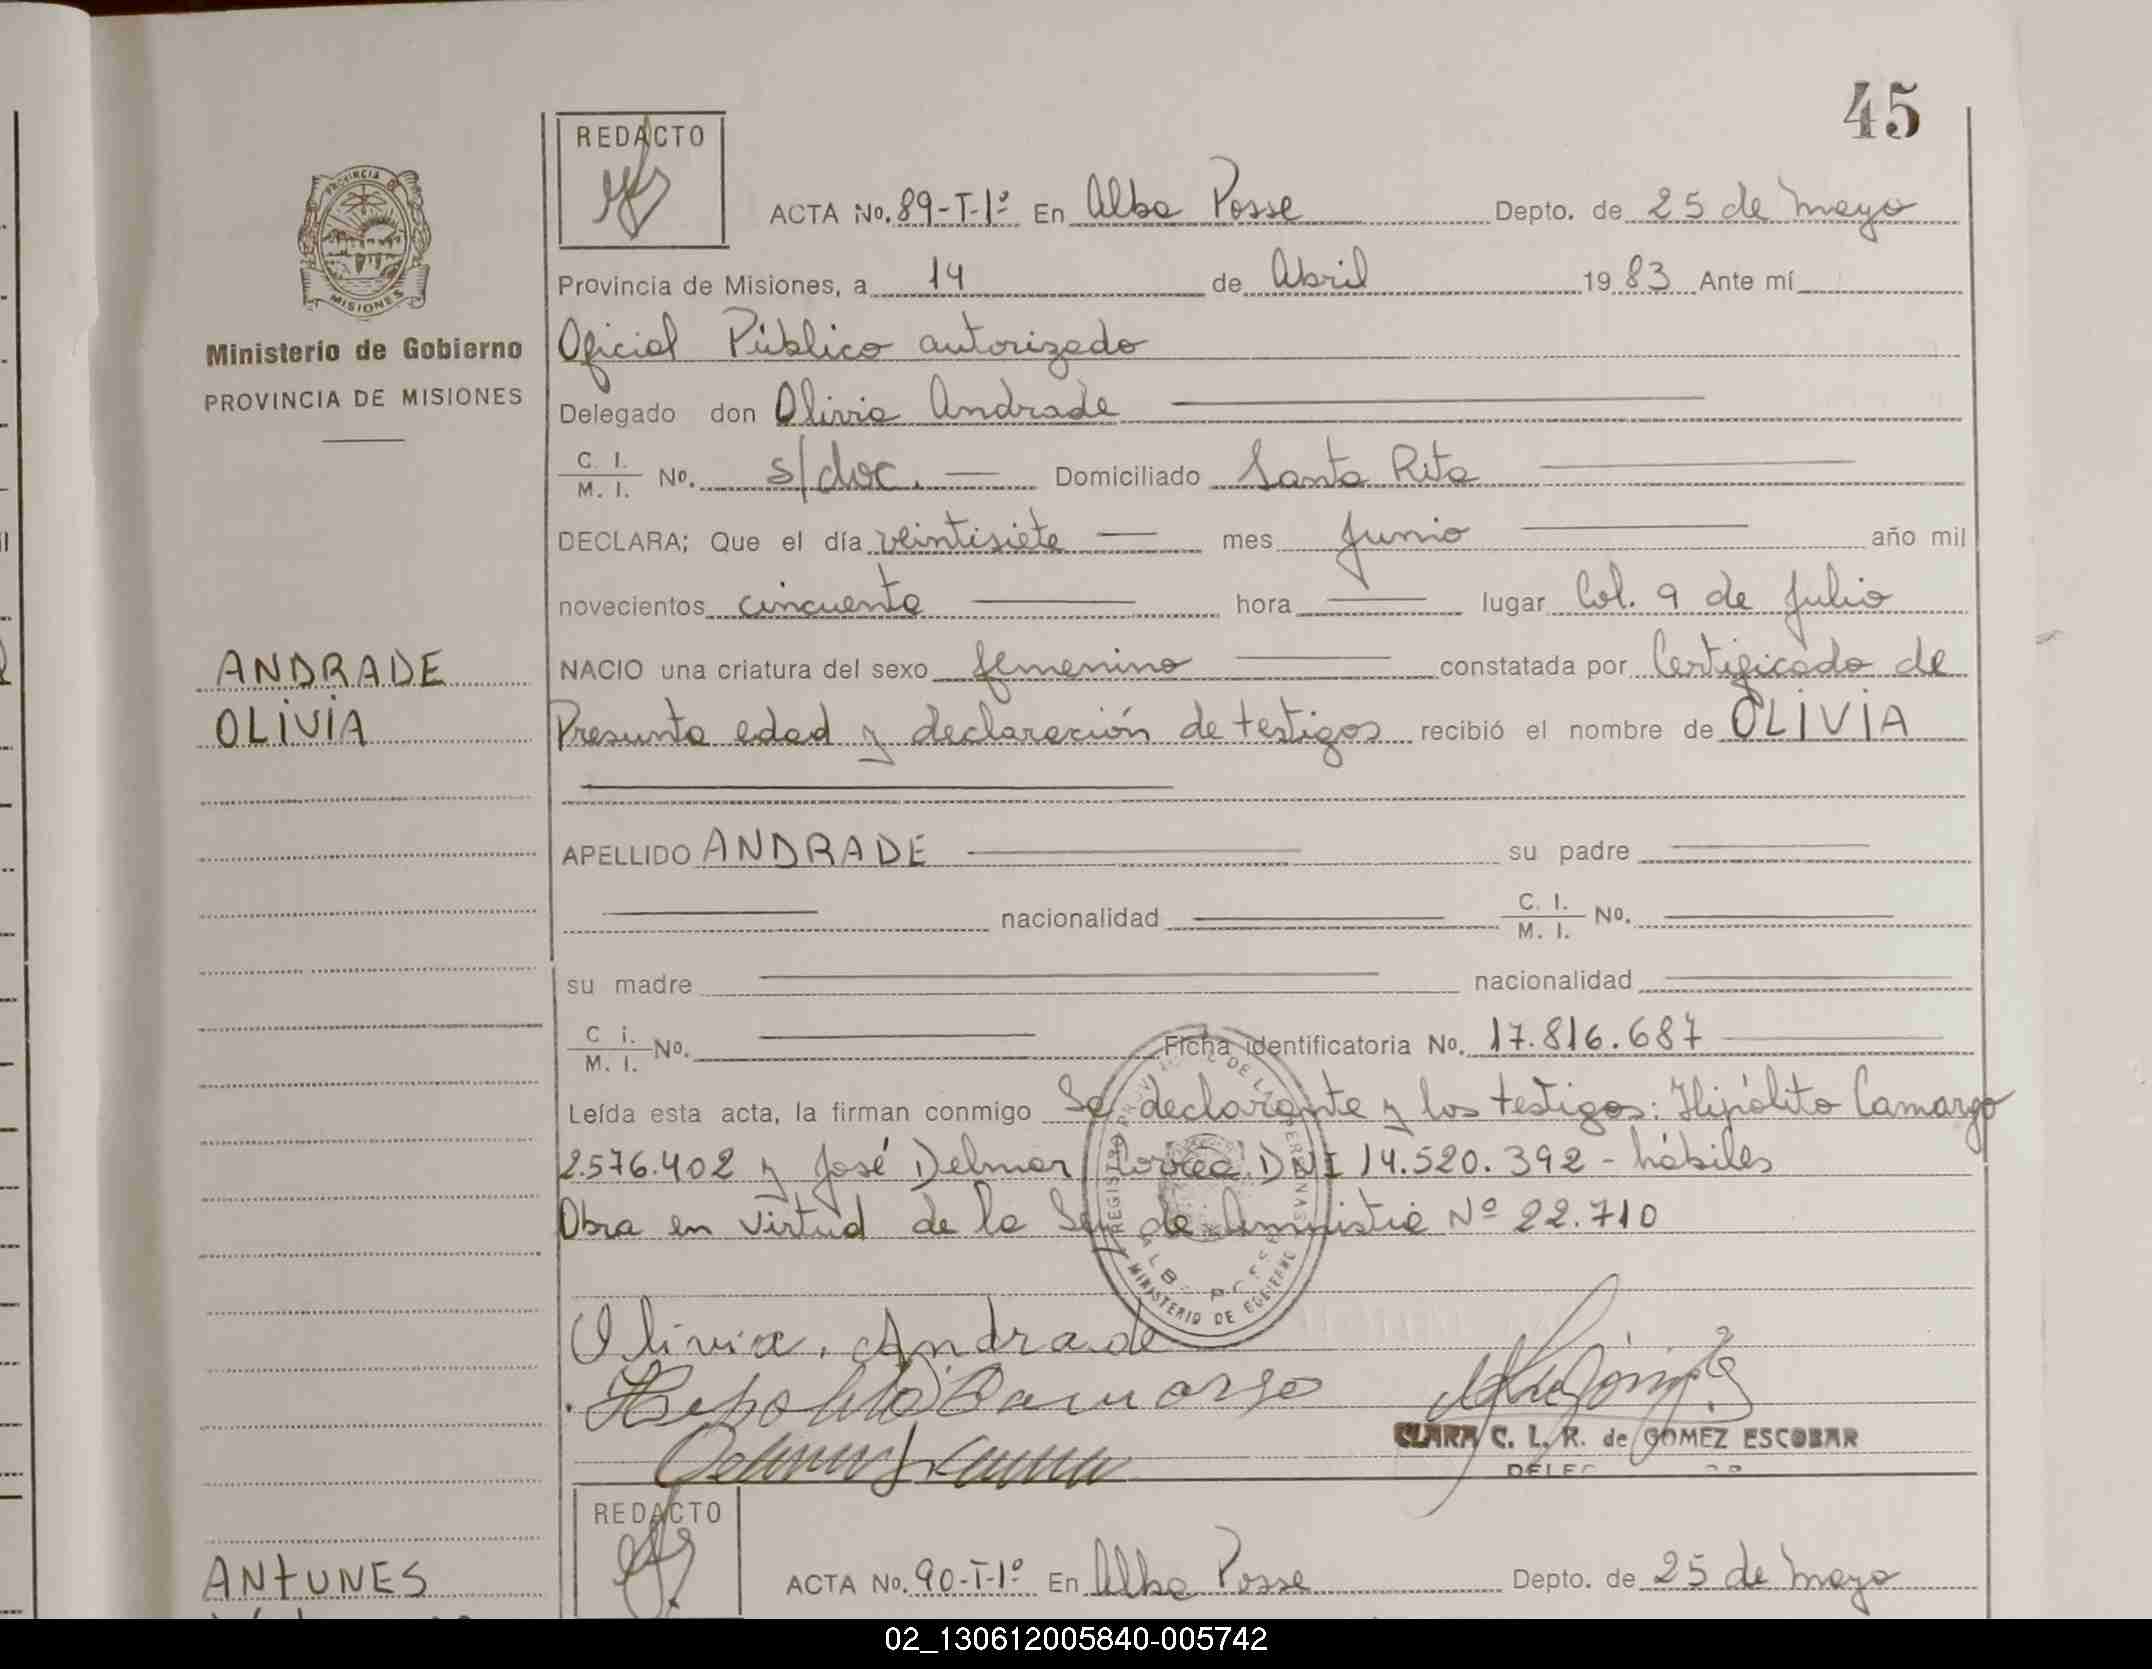 45
REDACTO
ACTA No. 89-T-1º En Alba Posse Depto. de 25 de mayo
Provincia de Misiones, a 14 de Abril 1983 Ante mí
Oficial Público autorizado
Delegado don Olivia Andrade
C. I.
M. I. No. s/doc. Domiciliado Santa Rita
DECLARA; Que el día veintisiete mes Junio año mil
novecientos cincuenta hora lugar Col. 9 de Julio
NACIO una criatura del sexo femenino constatada por Certificado de
Presunta edad y declaración de testigos recibió el nombre de OLIVIA
APELLIDO ANDRADE su padre
nacionalidad C. I.
M. I. No.
su madre nacionalidad
C i.
M. I. No. Ficha identificatoria No. 17.816.687
Leída esta acta, la firman conmigo La declarante y los testigos: Hipólito Camargo
2.576.402 y José Delmar Correa DNI 14.520.392 - hábiles
Obra en virtud de la Ley de Amnistia Nº 22.710
Olivia. Andrade
Hepolito Camargo
CLARA C. L. R. de GOMEZ ESCOBAR
PROVINCIA
MISIONES
Ministerio de Gobierno
PROVINCIA DE MISIONES
ANDRADE
OLIVIA
REGISTRO PROVINCIAL DE LAS PERSONAS
ALBA POSSE
MINISTERIO DE GOBIERNO
REDACTO
ANTUNES
ACTA No. 90-T-1º En Alba Posse Depto. de 25 de mayo
02_130612005840-005742